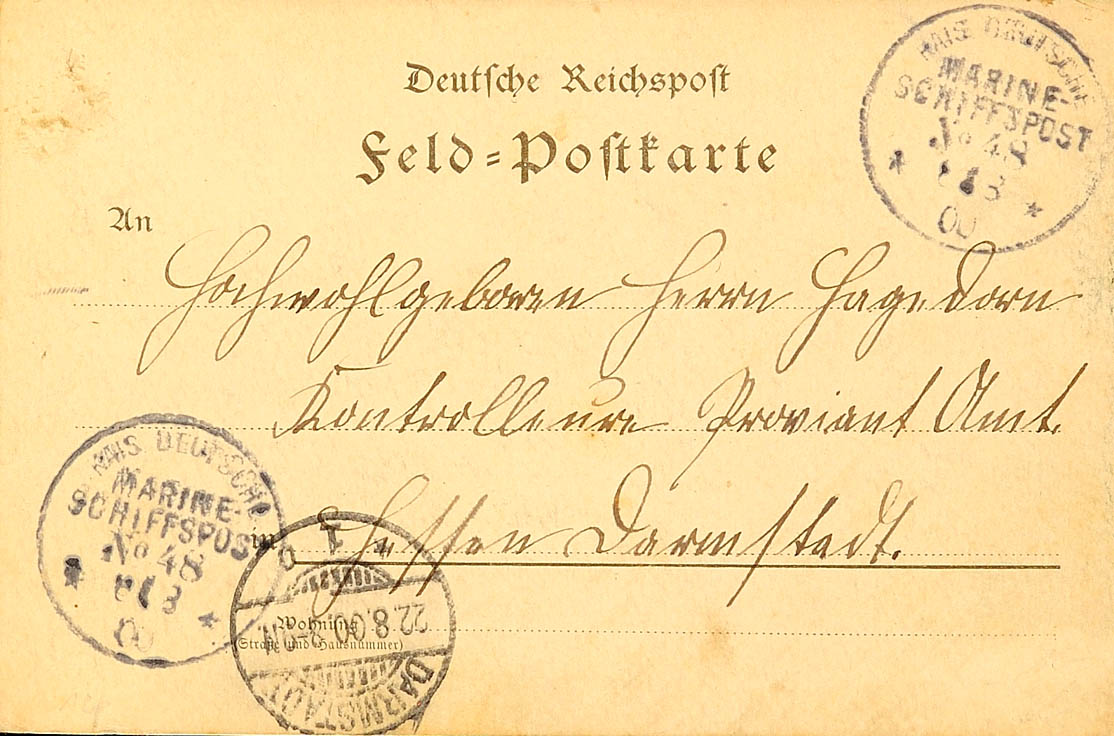 Deutsche Reichspost
Feld-Postkarte
KAIS. DEUTSCHE
MARINE-
SCHIFFSPOST
No 48
8
00
An
Hochwohlgeboren Herrn Hagedorn
Kontrolleure Proviant Amt.
in Hessen Darmstadt.
KAIS. DEUTSCHE
MARINE-
SCHIFFSPOST
No 48
8
00
Wohnung
(Straße und Hausnummer)
DARMSTADT
22.8.00